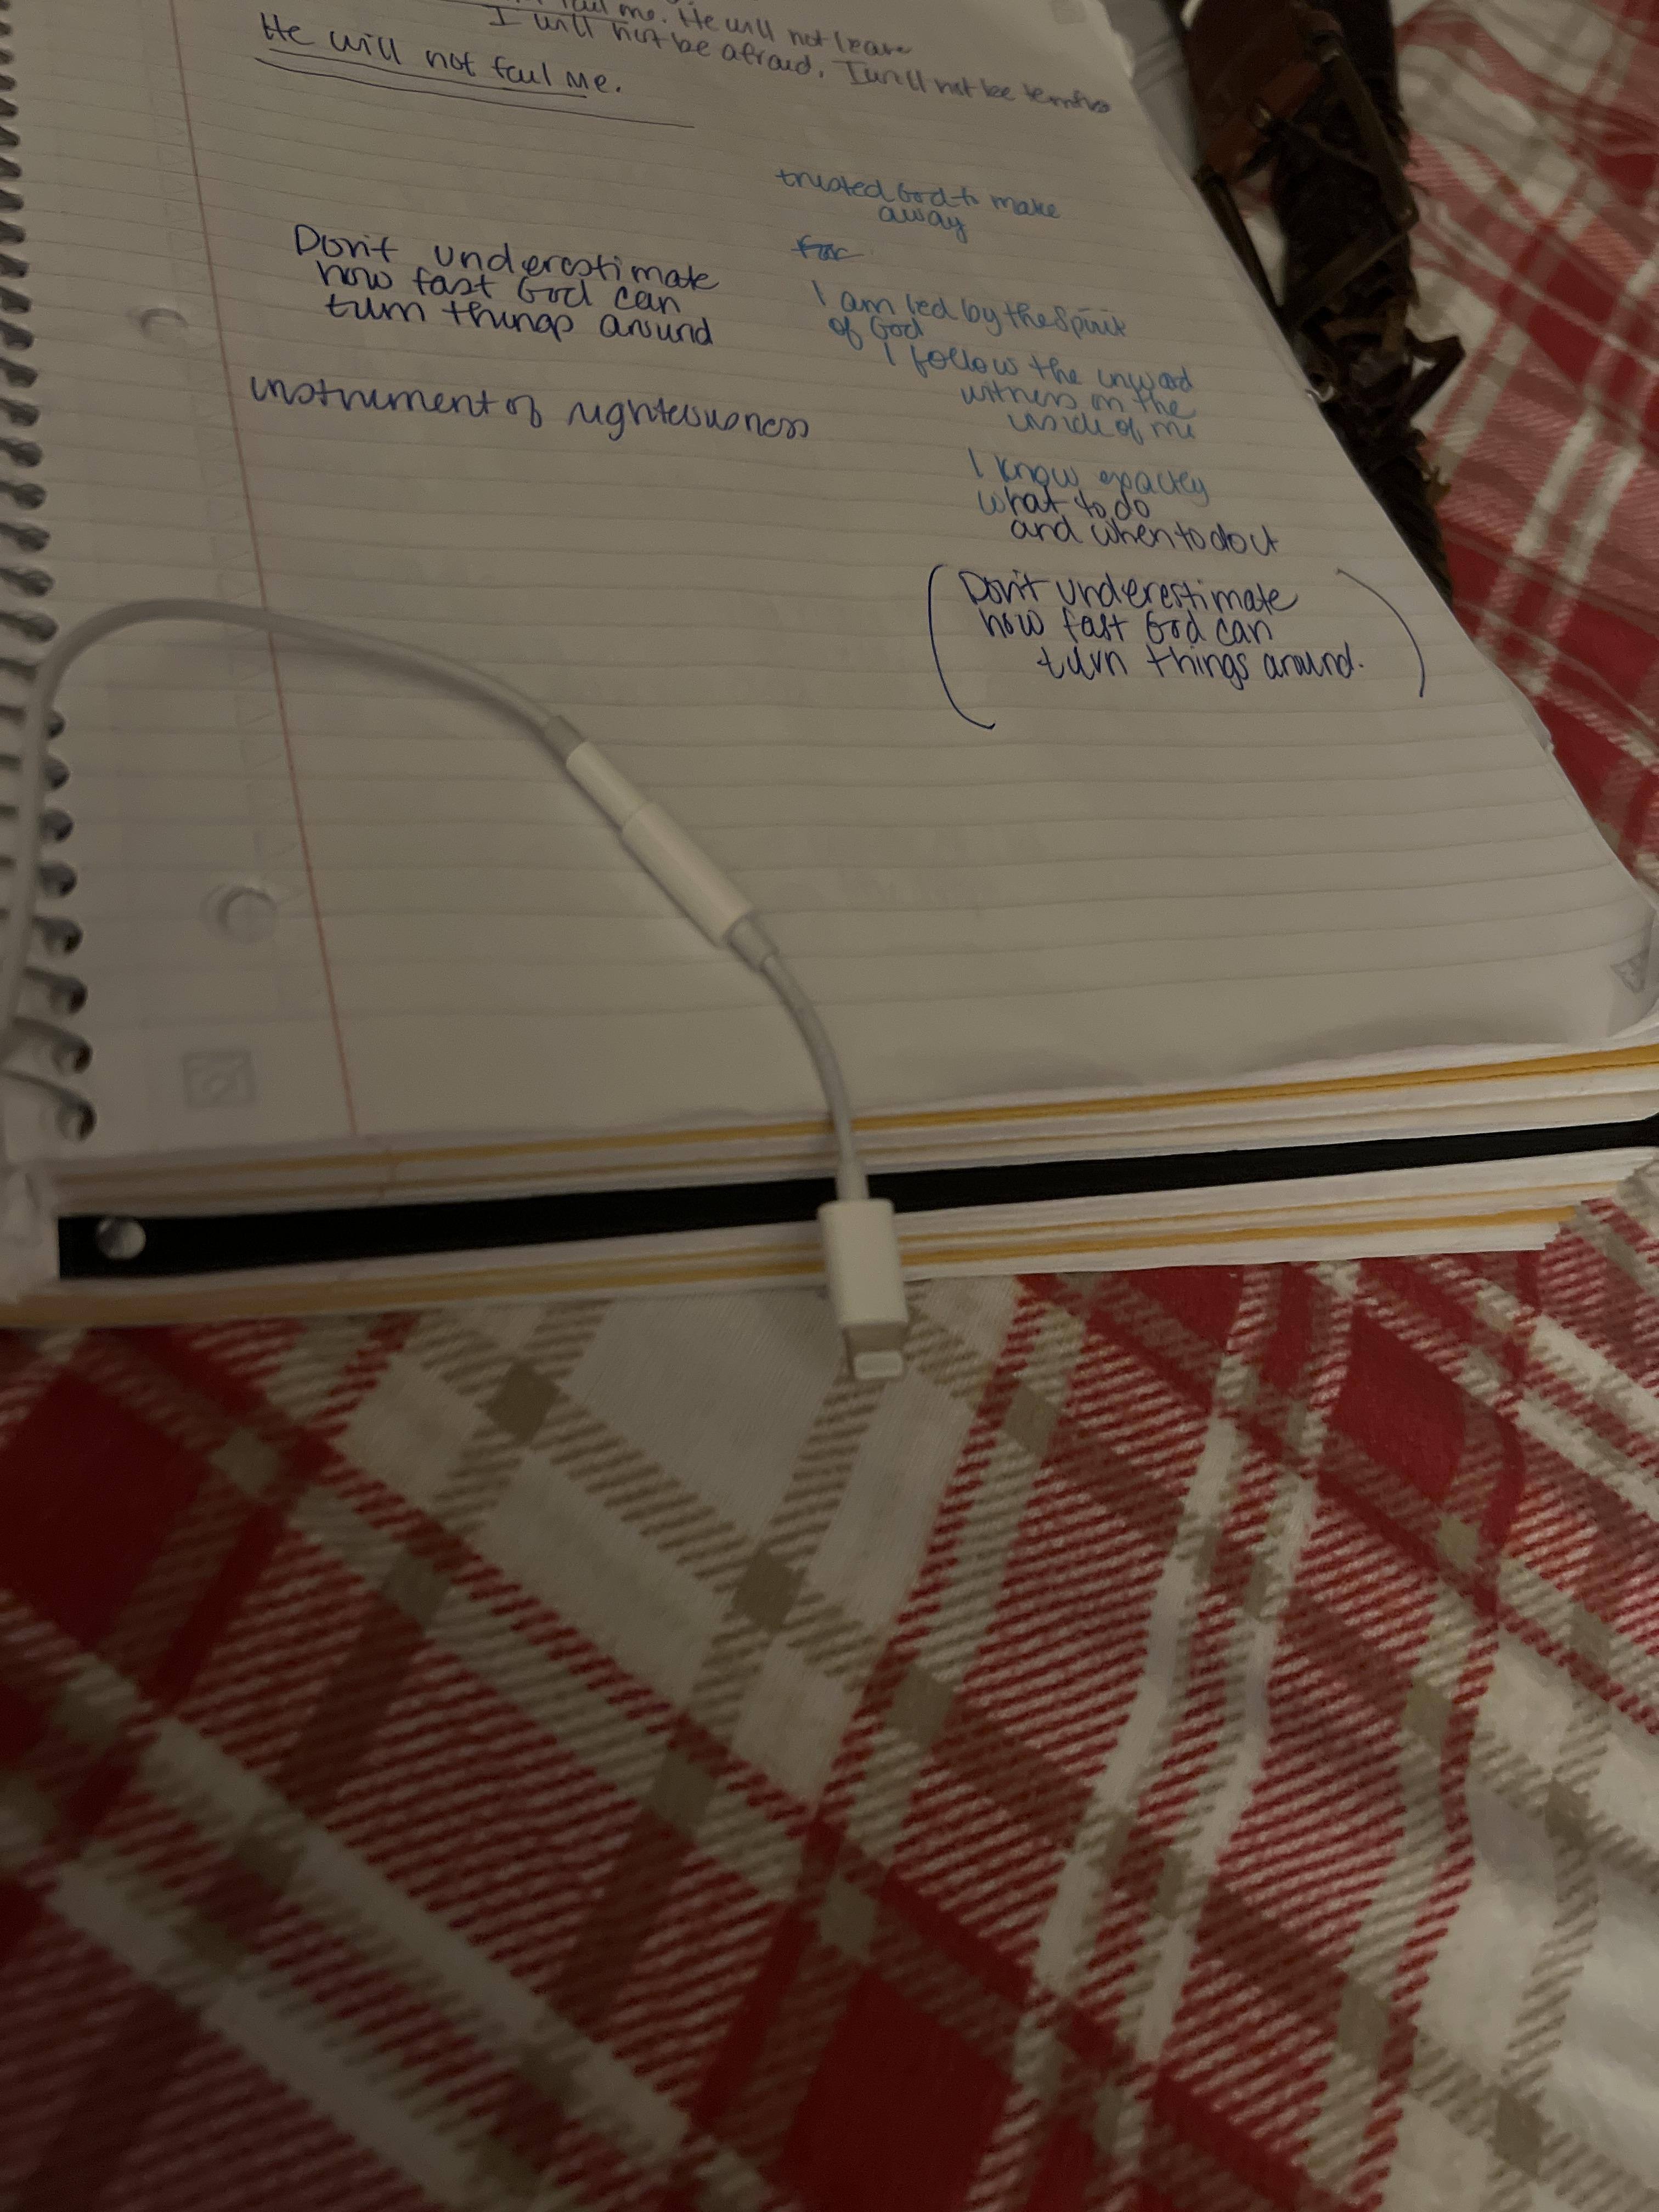 fail me. He will not leave
I will not be afraid. I will not be terrified
He will not fail me.
trusted God to make
away
for
Don't underestimate
how fast God can
turn things around
instrument of righteousness
I am led by the Spirit
of God
I follow the inward
witness on the
inside of me
I know exactly
what to do
and when to do it
(Don't underestimate
how fast God can
turn things around.)